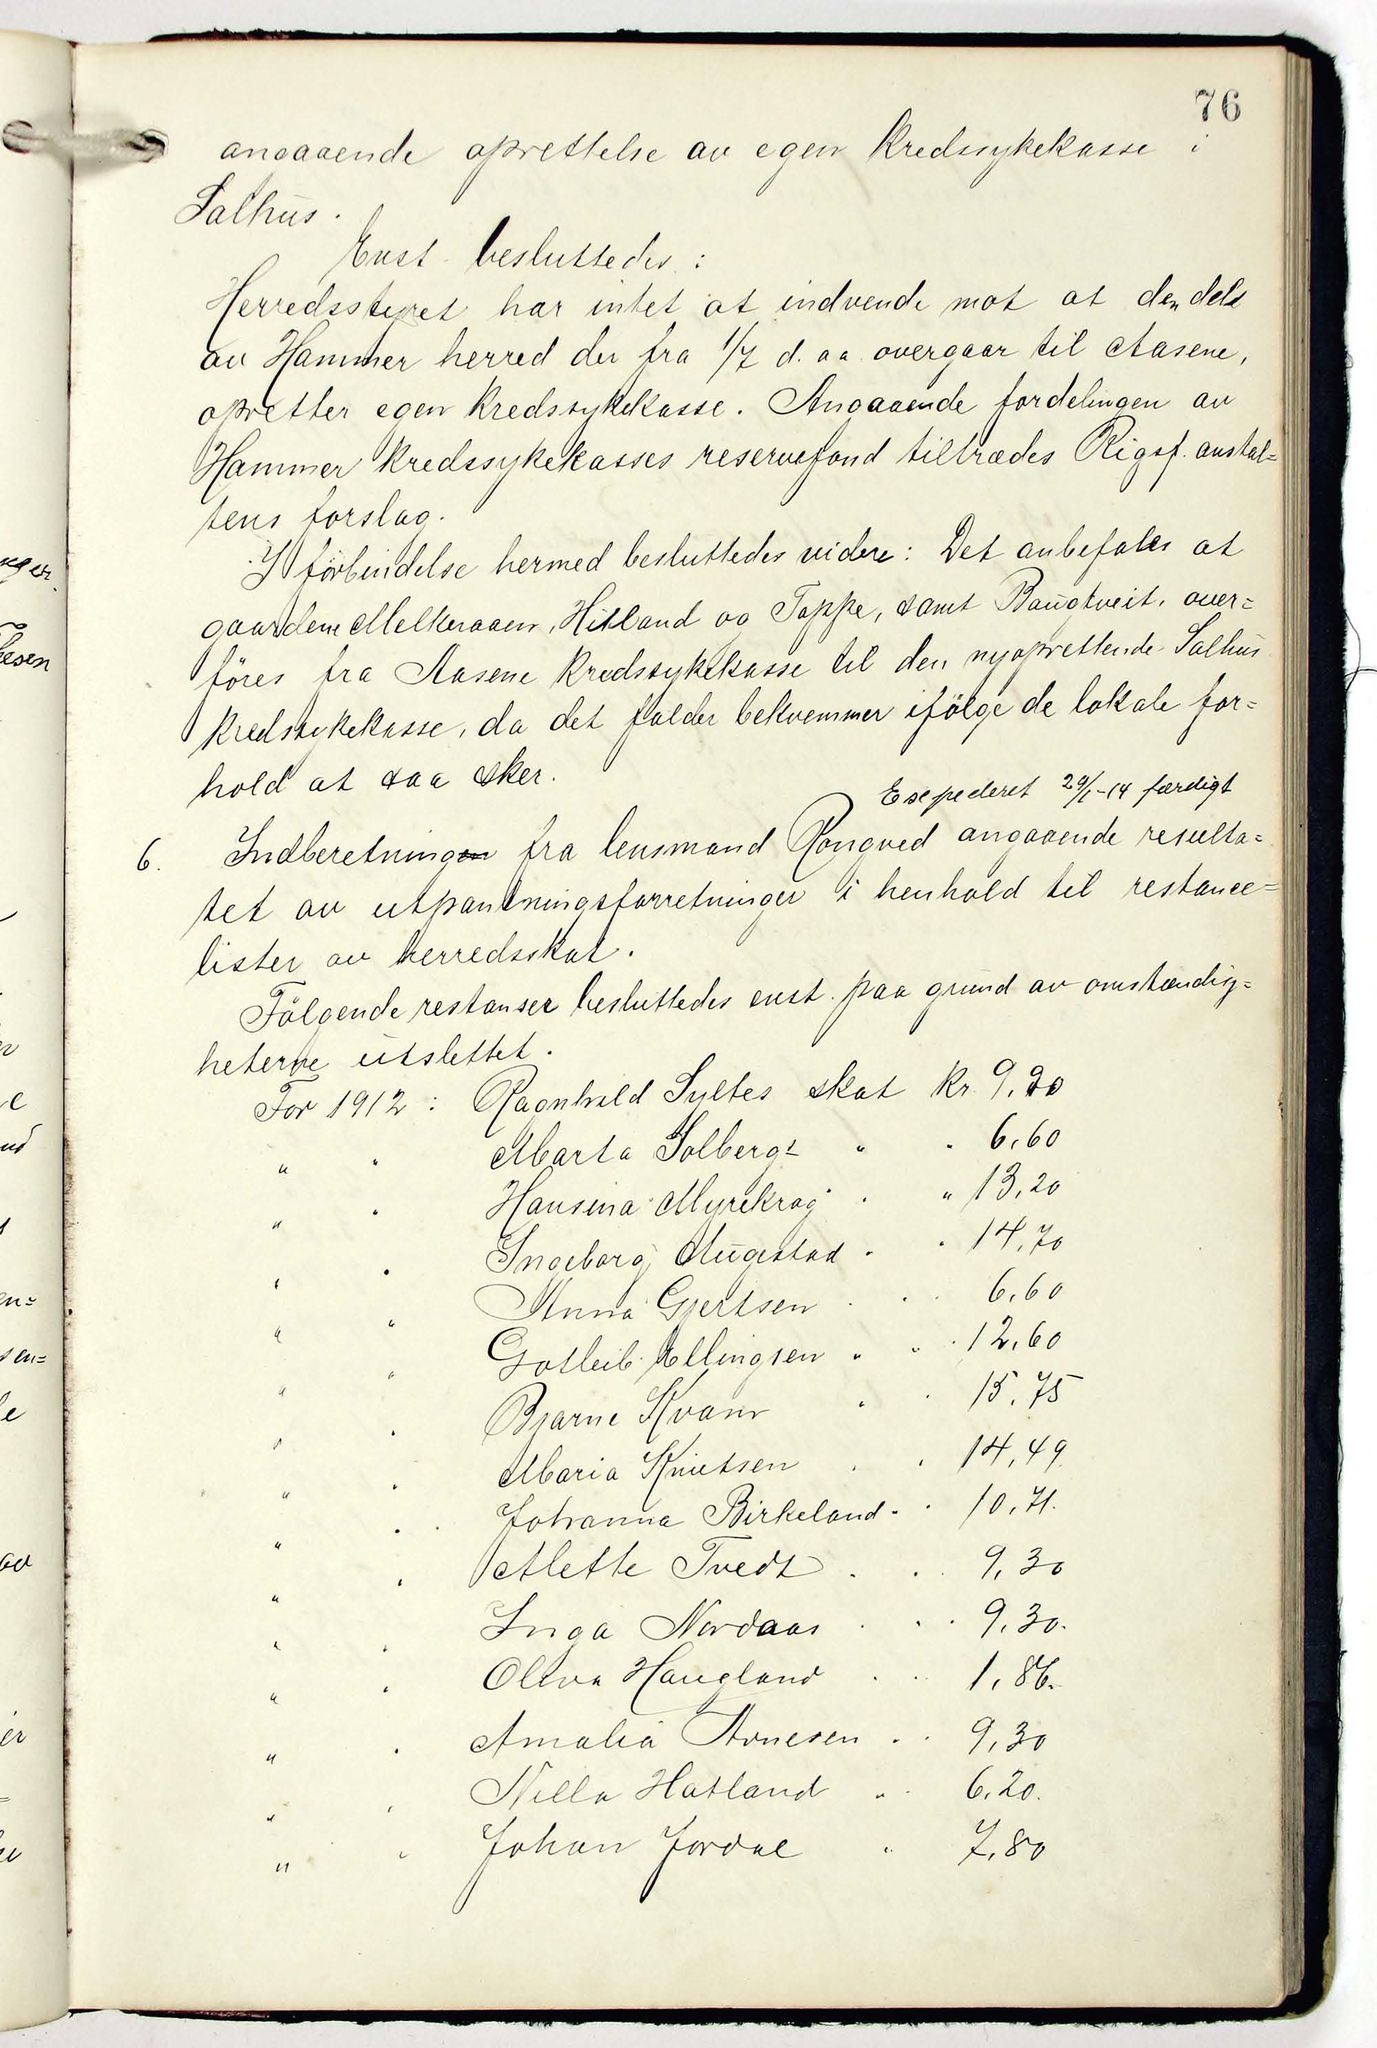 76
angaaende oprettelse av egen kredssykekasse i
Salhus.
Enst. besluttedes:
Herredsstyret har intet at indvende mot at den dels
av Hammer herred der fra 1/7 d. aa. overgaar til Aasene,
opretter egen kredssykekasse. Angaaende fordelingen av
Hammer kredssykekasses reservefond tiltrædes Rigsf. anstal=
tens forslag.
I forbindelse hermed besluttedes videre: Det anbefales at
gaardene Melkeraaen, Hitland og Toppe, samt Baugtveit, over=
føres fra Aasene kredssykekasse til den nyoprettende Salhus
kredssykekasse, da det falder bekvemmer ifölge de lokale for=
hold at saa sker.
Exspederet 29/1-14 færdigt
6. Indberetningen fra lensmand Rongved angaaende resulta=
tet av utpantningsforretninger i henhold til restance=
lister av herredsskat.
Fölgende restanser besluttedes enst. paa grund av omstændig=
heterne utslettet.
For 1912: Ragnhild Syltes skat kr. 9,20
" " Marta Solbergs " " 6,60
" " Hansina Myrekrog " " 13,20
" " Ingeborg Augestad " " 14,70
" " Anna Gjertsen " " 6,60
" " Gotleib Ellingsen " " 12,60
" " Bjarne Kvam " " 15,75
" " Maria Knutsen " " 14,49
" " Johanna Birkeland " " 10,71.
" " Alette Tvedt " " 9,30
" " Inga Nordaas " " 9,30.
" " Oliva Haugland " " 1,86.
" " Amalia Arnesen " " 9,30
" " Nilla Hatland " " 6,20.
" " Johan Jordal " 7,80